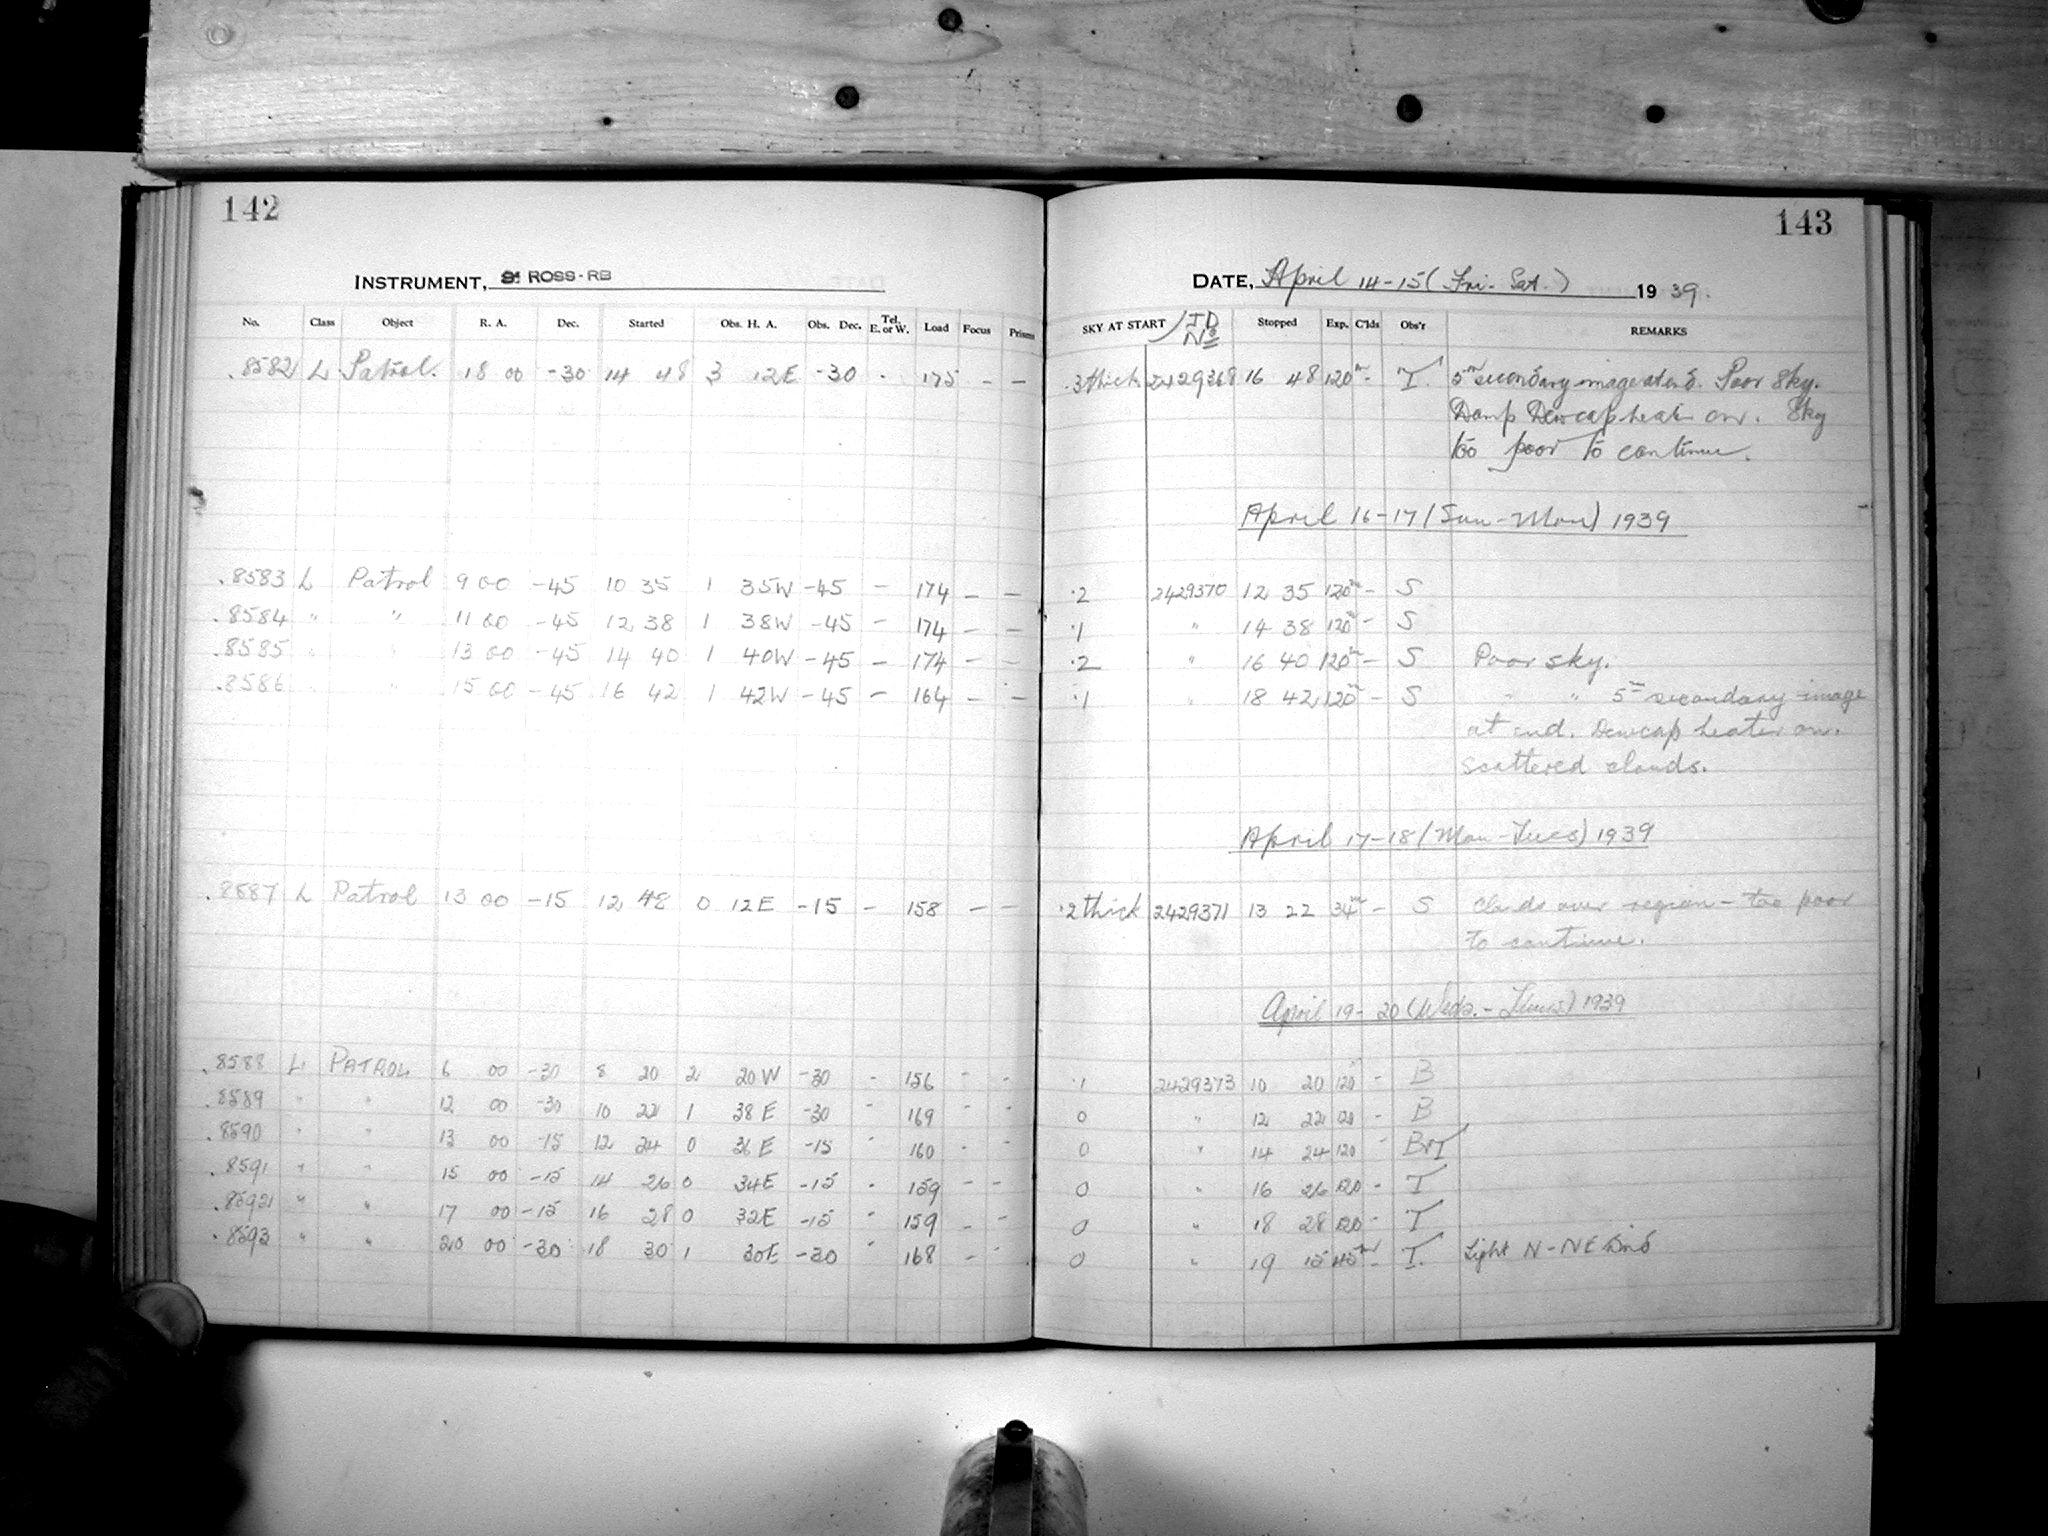 142
INSTRUMENT, ROSS-RB
No. Class Object R. A. Dec. Started Obs. H. A. Obs. Dec. Tel. E. or W. Load Focus Prisms
.8582 L Patrol. 18 00 -30 14 48 3 12E -30 - 175 - -
.8583 L Patrol 9 00 -45 10 35 1 35W -45 - 174 - -
.8584 " " 11 00 -45 12 38 1 38W -45 - 174 - -
.8585 " " 13 00 -45 14 40 1 40W -45 - 174 - -
.8586 " " 15 00 -45 16 42 1 42W -45 - 164 - -
.8587 L Patrol 13 00 -15 12 48 0 12E -15 - 158 - -
.8588 L PATROL 6 00 -30 8 20 2 20W -30 - 156 - -
.8589 " " 12 00 -30 10 22 1 38E -30 - 169 - -
.8590 " " 13 00 -15 12 24 0 36E -15 - 160 - -
.8591 " " 15 00 -15 14 26 0 34E -15 - 159 - -
.8592 " " 17 00 -15 16 28 0 32E -15 - 159 - -
.8593 " " 20 00 -30 18 30 1 30E -30 - 168 - -
143
DATE, April 14-15 (Fri-Sat.) 1939.
SKY AT START / JD No Stopped Exp. C'lds Obs'r REMARKS
.3 thick 2429368 16 48 120m - T. 5m secondary image at end. Poor sky.
Damp Dewcap heater on. Sky
too poor to continue.
April 16-17 (Sun-Mon) 1939
.2 2429370 12 35 120m - S
.1 " 14 38 120m - S
.2 " 16 40 120m - S Poor sky.
.1 " 18 42 120m - S " " 5m secondary image
at end. Dewcap heater on.
scattered clouds.
April 17-18 (Mon-Tues) 1939
.2 thick 2429371 13 22 34m - S Clouds over region - too poor
to continue.
April 19-20 (Weds.-Thurs) 1939
.1 2429373 10 20 120m - B
0 " 12 22 120 - B
0 " 14 24 120 - B+T
0 " 16 26 120 - T
0 " 18 28 120 - T
0 " 19 15 45m - T. Light N-NE wind